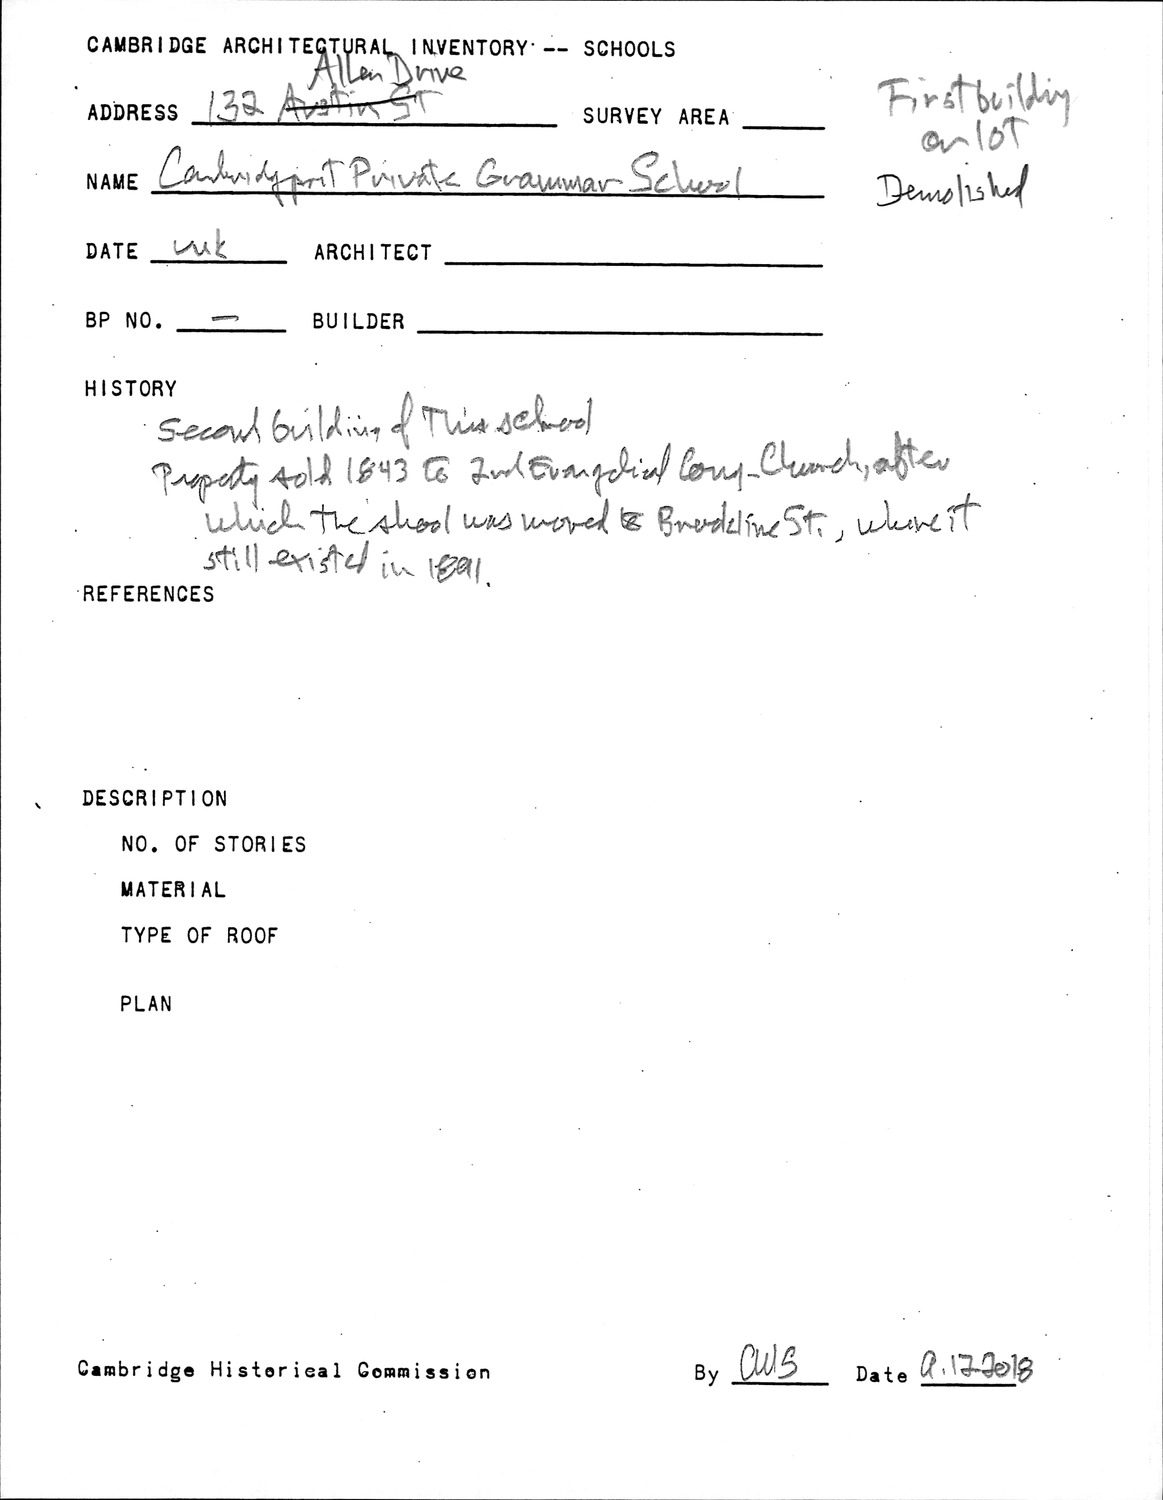 CAMBRIDGE ARCHITECTURAL INVENTORY -- SCHOOLS
Allen Drive
ADDRESS 132 Austin ST SURVEY AREA
First building
on lot
Demolished
NAME Cambridgeport Private Grammar School
DATE unk ARCHITECT
BP NO. — BUILDER
HISTORY
Second building of This school
Property sold 1843 to 2nd Evangelical Cong. Church, after
which the shool was moved to Brookline St., where it
still existed in 1891.
REFERENCES
DESCRIPTION
NO. OF STORIES
MATERIAL
TYPE OF ROOF
PLAN
Cambridge Historical Commission By CWS Date 9.17.2018